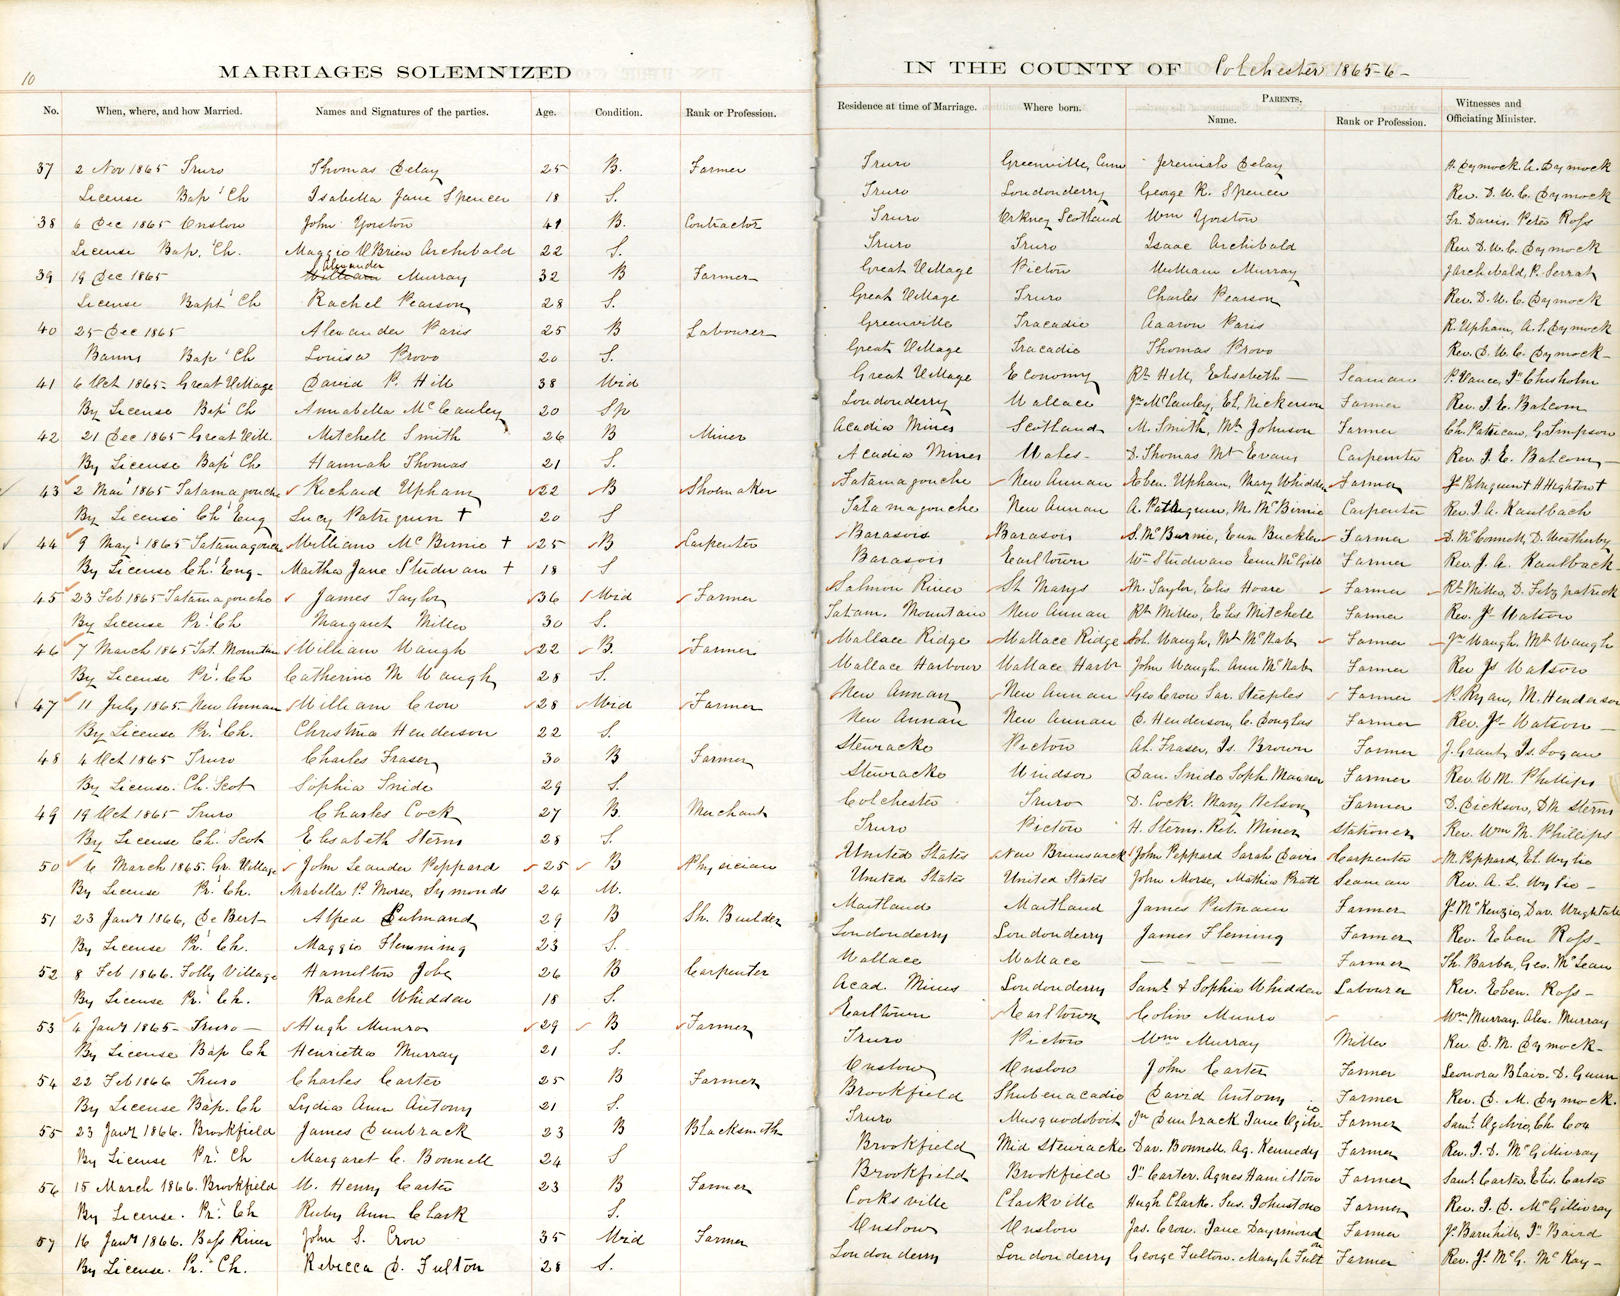 10
MARRIAGES SOLEMNIZED IN THE COUNTY OF Colchester 1865-6-
No. When, where, and how Married. Names and Signatures of the parties. Age. Condition. Rank or Profession. Residence at time of Marriage. Where born. PARENTS. Name. Rank or Profession. Witnesses and Officiating Minister.
37 2 Nov 1865 Truro Thomas Delay 25 B. Farmer Truro Greenville, Cum Jeremiah Delay H. Dymock. A. Dymock
License Bap Ch Isabella Jane Spencer 18 S. Truro Londonderry George R. Spencer Rev. D. W. C. Dymock
38 6 Dec 1865 Onslow John Yorston 41 B. Contractor Truro Orkney Scotland Wm Yorston Davis. Peter Ross
License Bap. Ch. Maggie O'Brien Archibald 22 S. Truro Truro Isaac Archibald Rev D. W. C. Dymock
39 19 Dec 1865 Alexander Murray 32 B Farmer Great Village Pictou William Murray J Archibald, P.
License Bapt Ch Rachel Pearson 28 S. Great Village Truro Charles Pearson Rev. D. W. C. Dymock
40 25 Dec 1865 Alexander Paris 25 B Labourer Greenville Tracadie Aaaron Paris R. Upham, A. S. Dymock
Banns Bap Ch Louisa Provo 20 S. Great Village Tracadie Thomas Provo Rev. D. W. C. Dymock-
41 6 Oct 1865- Great Village David P. Hill 38 Wid Great Village Economy Rt Hill, Elisabeth- Seaman P. Vance, Chisholm
By License Bap Ch Annabella McCauley 20 Sp Londonderry Wallace Jn McCauley, El. Nickerson Farmer Rev. I. E. Balcom
42 21 Dec 1865 Great Vill. Mitchell Smith 26 B Miner Acadia Mines Scotland M. Smith, Mt Johnson Farmer Ch. G. Simpson
By License Bap Ch Hannah Thomas 21 S. Acadia Mines Wales- D. Thomas Mt Evans Carpenter Rev. I. E. Balcom-
43 2 Mar 1865 Tatamagouche Richard Upham 22 B Shoemaker Tatamagouche New Annan Eben. Upham, Mary Whidden Farmer J. Patrequin + H Highton +
By License Ch Eng Lucy Patriquin + 20 S Tatamagouche New Annan A. Patriquin, M. McBirnie Carpenter Rev. J. A. Kaulback
44 9 May 1865 Tatamagouche William McBirnie + 25 B Carpenter Barasois Barasois S. McBurnie, Eun Buckler Farmer D. McConnell, D. Weatherby
By License Ch. Eng- Martha Jane Studivan + 18 S Barasois Earltown Wm Studivan Eun McGill Farmer Rev. J. A. Kaulback-
45 23 Feb 1865 Tatamagouche James Taylor 36 Wid Farmer Salmon River St Marys M. Taylor, Elis Hoare Farmer Rt Miller, D. Fitzpatrick
By License Pr. Ch Margaret Miller 30 S. Tatam. Mountain New Annan Rt Miller, Elis Mitchell Farmer Rev. Js Watson
46 7 March 1865 Tat. Mountain William Waugh 22 B. Farmer Wallace Ridge Wallace Ridge Sol. Waugh, Mt McNab Farmer Jn Waugh. Mt Waugh
By License Pr. Ch Catherine M Waugh 28 S. Wallace Harbour Wallace Harbr John Waugh. Ann McNab Farmer Rev Js Watson
47 11 July 1865 New Annan William Crow 28 Wid Farmer New Annan New Annan Geo Crow Sar. Steeples Farmer P. Ryan, M. Henderson
By License Pr. Ch. Christina Henderson 22 S. New Annan New Annan D. Henderson, C. Douglas Farmer Rev. Js Watson-
48 4 Oct 1865 Truro Charles Fraser 30 B Farmer Stewiacke Pictou Al. Fraser, Is. Brown Farmer J. Grant, Is. Logan
By License. Ch. Scot Sophia Snide 29 S. Stewiacke Windsor Dan. Snide Soph. Mariner Farmer Rev. W M. Phillips
49 19 Oct 1865 Truro Charles Cock 27 B. Merchant Colchester Truro D. Cock. Mary Nelson Farmer D. Dickson, DM Sterns
By License Ch. Scot Elisabeth Sterns 28 S. Truro Pictou H. Sterns. Reb. Miner Stationer Rev. Wm M. Phillips
50 6 March 1865. Gr. Village John Leander Peppard 25 B Physician United States New Brunswick John Peppard Sarah Davis Carpenter M. Peppard, El. Wylie
By License Pr. Ch. Arabella P. Morse, Symonds 24 W. United States United States John Morse, Mathia Pratt Seaman Rev. A. L. Wylie-
51 23 Janr 1866, De Bert Alfred Putmand 29 B Sh. Builder Maitland Maitland James Putnam Farmer Js McKenzie, Dav.
By License Pr. Ch. Maggie Flemming 23 S. Londonderry Londonderry James Fleming Farmer Rev. Eben Ross-
52 8 Feb 1866. Folly Village Hamilton Jobe 26 B Carpenter Wallace Wallace - - - - Farmer Th. Barber, Geo. McLean
By License Pr. Ch. Rachel Whidden 18 S. Acad. Mines Londonderry Saml & Sophia Whidden Labourer Rev. Eben. Ross-
53 4 Janr 1865- Truro- Hugh Munro 29 B Farmer Earltown Earltown Colin Munro Wm Murray. Alex. Murray
By License Bap Ch Henrietta Murray 21 S. Truro Pictou Wm Murray Miller Rev D. M. Dymock-
54 22 Feb 1866 Truro Charles Carter 25 B Farmer Onslow Onslow John Carter Farmer Leonora Blair. D. Gunn
By License Bap. Ch Lydia Ann Antony 21 S. Brookfield Shubenacadie David Antony Farmer Rev. D. M. Dymock.
55 23 Janr 1866. Brookfield James Dunbrack 23 B Blacksmith Truro Musquodoboit Jn Dunbrack Jane Ogilvie Farmer Saml. Ogilvie, Ch. Cox
By License Pr. Ch Margaret C. Bonnell 24 S Brookfield Mid Stewiacke Dav. Bonnell. Ag. Kennedy Farmer Rev. I. D. McGillivray
56 15 March 1866. Brookfield W. Henry Carter 23 B Farmer Brookfield Brookfield Carter. Agnes Hamilton Farmer Saml. Carter. Elis. Carter
By License. Pr. Ch Ruby Ann Clark S. Corksville Clarkville Hugh Clarke. Sus. Johnstone Farmer Rev. I. D. McGillivray
57 16 Janr 1866. Bass River John S. Crow 35 Wid Farmer Onslow Onslow Jas. Crow. Jane Daymond Farmer Js. Barnhill, Baird
By License. Pr. Ch. Rebecca D. Fulton 28 S. Londonderry Londonderry George Fulton. Mary A Fulton Farmer Rev. Js McG. McKay-